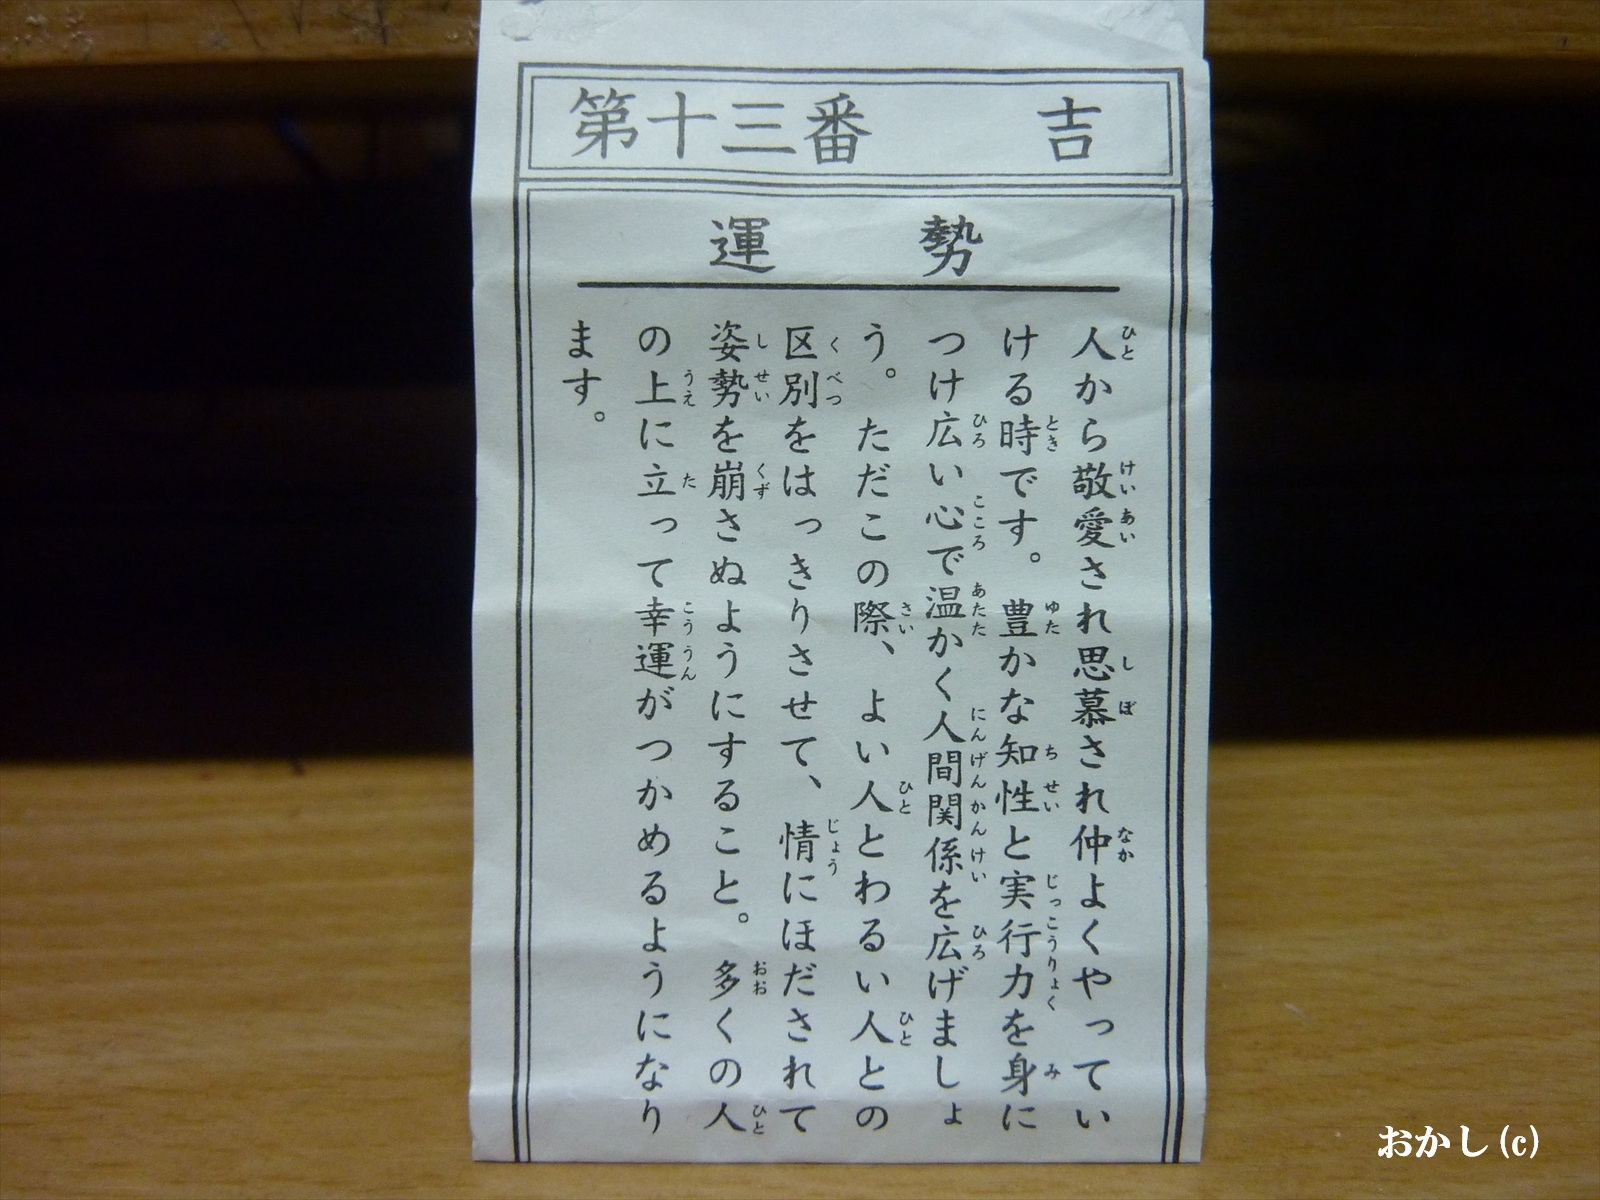 第十三番 吉
運勢
人から敬愛され思慕され仲よくやってい
ける時です。豊かな知性と実行力を身に
つけ広い心で温かく人間関係を広げましょ
う。ただこの際、よい人とわるい人との
区別をはっきりさせて、情にほだされて
姿勢を崩さぬようにすること。多くの人
の上に立って幸運がつかめるようになり
ます。
おかし(c)